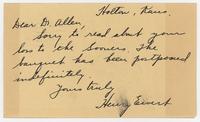 Holton, Kans.
Dear Dr. Allen,
Sorry to read about your
loss to the Sooners. The
banquet has been postponed
indefinitely.
Yours truly
Henry